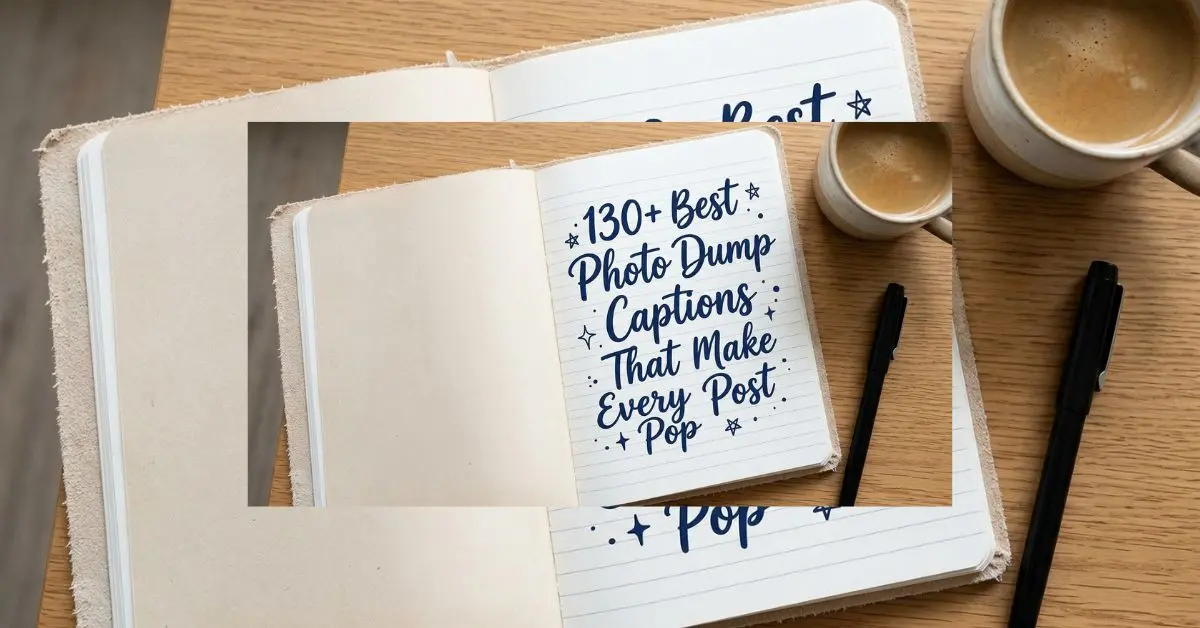 Best
130+ Best
Photo Dump
Captions
That Make
Every Post
Pop
Pop